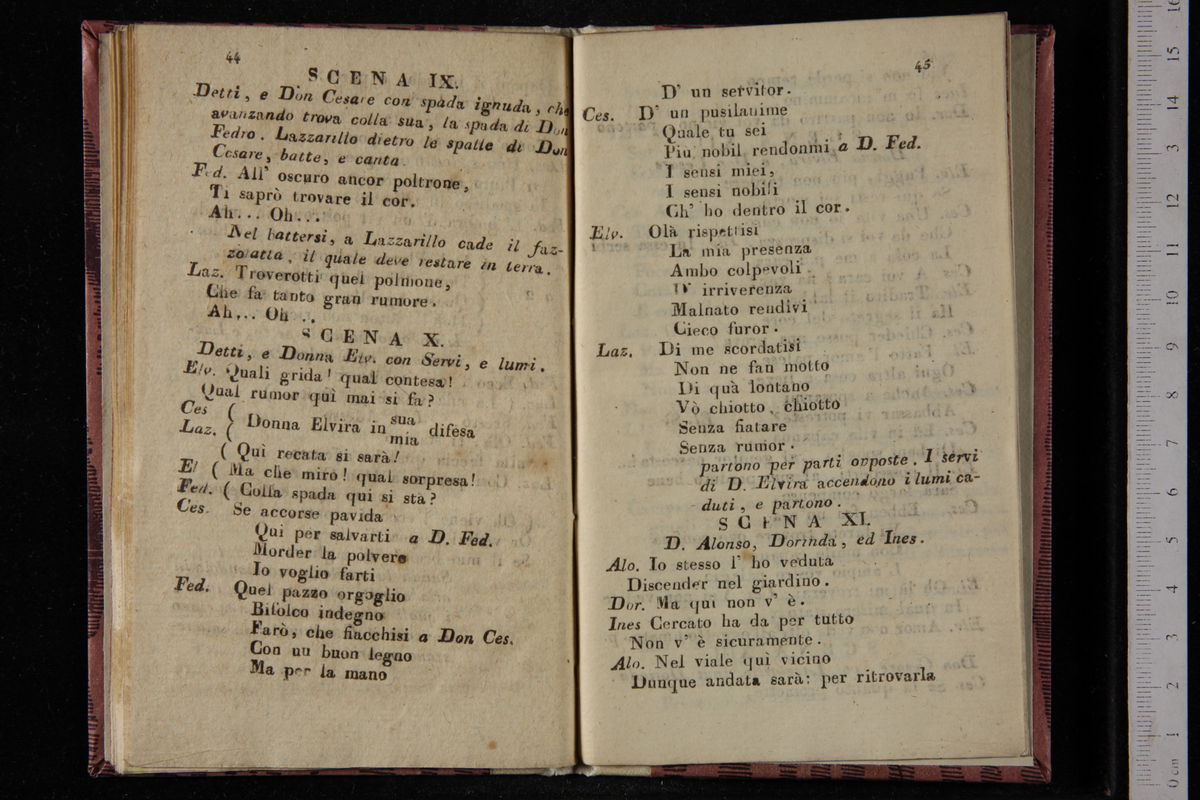 44
SCENA IX.
Detti, e Don Cesare con spada ignuda, che
avanzando trova colla sua, la spada di Don
Fedro. Lazzarillo dietro le spalle di Don
Cesare, batte, e canta.
Fed. All' oscuro ancor poltrone,
Ti saprò trovare il cor.
Ah... Oh...
Nel battersi, a Lazzarillo cade il faz-
zoiatta, il quale deve restare in terra.
Laz. Troverotti quel polmone,
Che fa tanto gran rumore.
Ah... Oh ..
SCENA X.
Detti, e Donna Elv. con Servi, e lumi.
Elv. Quali grida! qual contesa!
Qual rumor quì mai si fa?
Ces (
Laz. ( Donna Elvira in sua mia difesa
( Quì recata si sarà!
El ( Ma che miro! qual sorpresa!
Fed. ( Colla spada qui si sta?
Ces. Se accorse pavida
Qui per salvarti a D. Fed.
Morder la polvere
Io voglio farti
Fed. Quel pazzo orgoglio
Bifolco indegno
Farò, che fiacchisi a Don Ces.
Con un buon legno
Ma per la mano
45
D' un servitor.
Ces. D' un pusilanime
Quale tu sei
Piu nobil rendonmi a D. Fed.
I sensi miei,
I sensi nobili
Ch' ho dentro il cor.
Elv. Olà rispettisi
La mia presenza
Ambo colpevoli
D' irriverenza
Malnato rendivi
Cieco furor.
Laz. Di me scordatisi
Non ne fan motto
Di quà lontano
Vò chiotto, chiotto
Senza fiatare
Senza rumor.
partono per parti opposte. I servi
di D. Elvira accendono i lumi ca-
duti, e partono.
SCENA XI.
D. Alonso, Dorinda, ed Ines.
Alo. Io stesso l' ho veduta
Discender nel giardino.
Dor. Ma qui non v' è.
Ines Cercato ha da per tutto
Non v' è sicuramente.
Alo. Nel viale quì vicino
Dunque andata sarà: per ritrovarla
0 cm 1 2 3 4 5 6 7 8 9 10 11 12 13 14 15 16